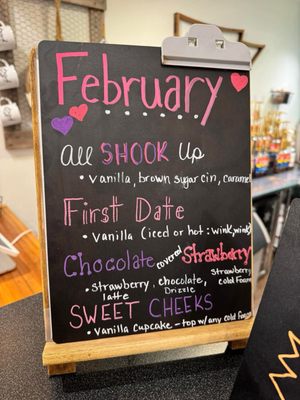 February
All SHOOK Up
• vanilla, brown sugar cin, caramel
First Date
• vanilla (iced or hot :wink,wink)
Chocolate covered Strawberry
• strawberry, chocolate, strawberry
latte Drizzle cold Foam
SWEET CHEEKS
• Vanilla Cupcake - top w/any cold Foam